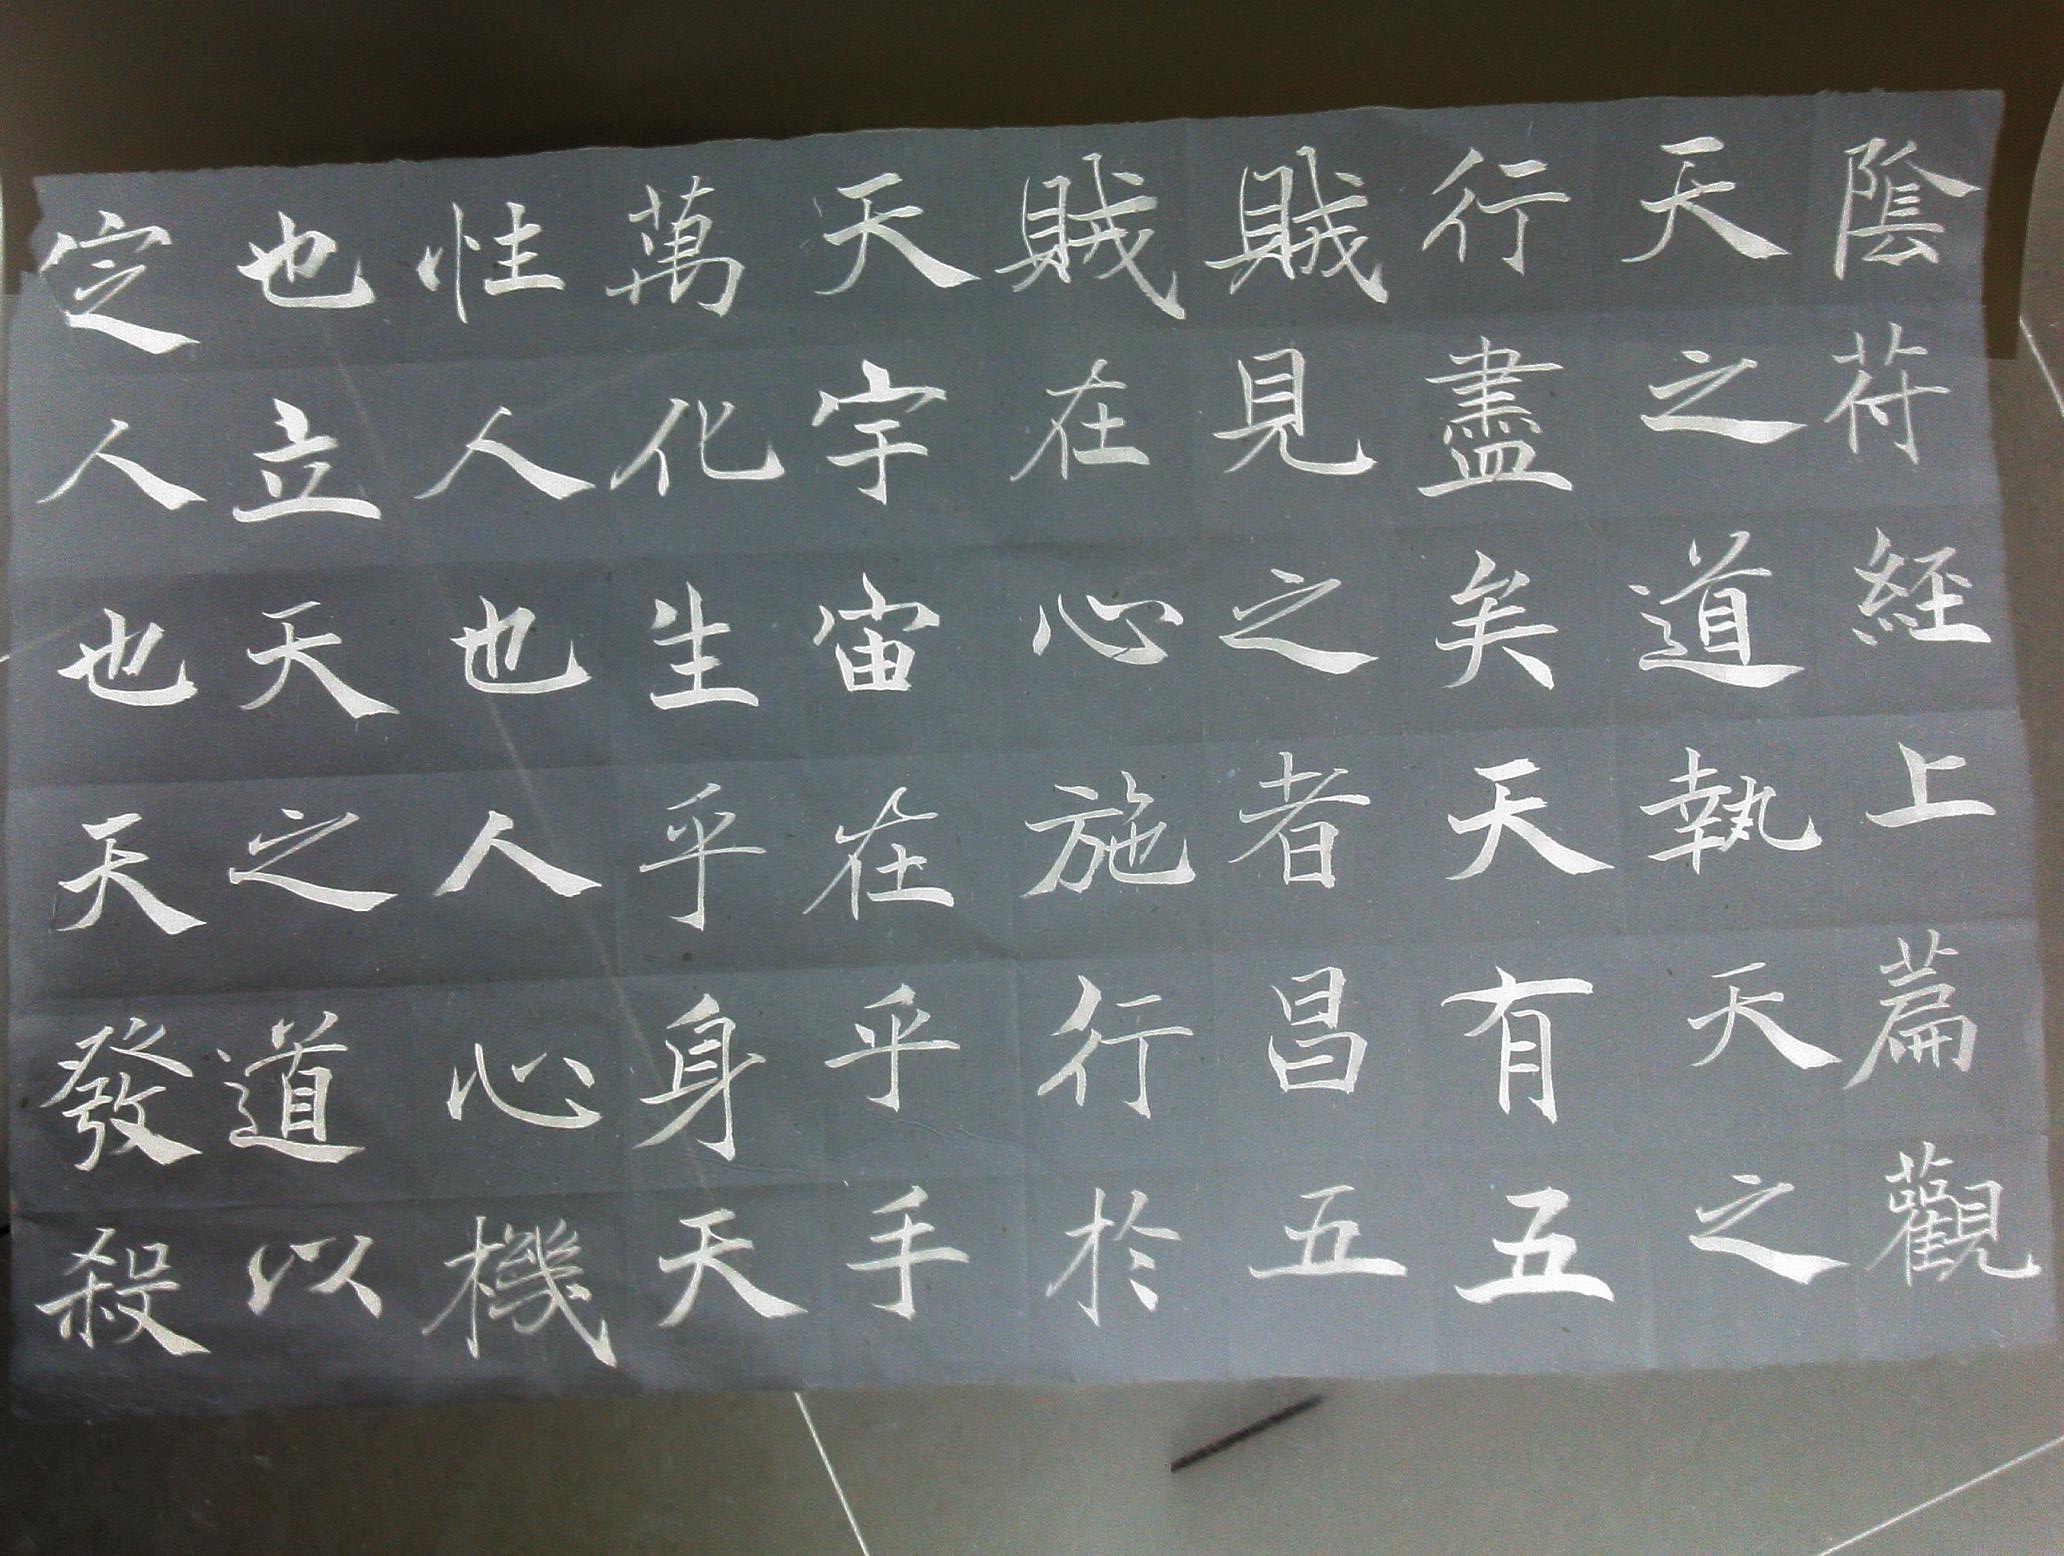 陰符經上篇觀
天之道執天之
行盡矣天有五
賊見之者昌五
賊在心施行於
天宇宙在乎手
萬化生乎身天
性人也人心機
也立天之道以
定人也天發殺